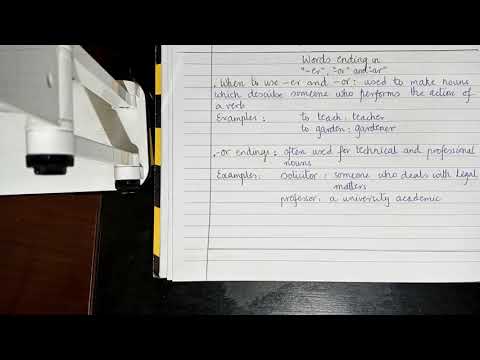 Words ending in
"-er", "-or" and "-ar"
. When to use -er and -or : used to make nouns
which describe someone who performs the action of
a verb
Examples : to teach : teacher
to garden : gardener
.-or endings : often used for technical and professional
nouns
Examples: solicitor : someone who deals with legal
matters
professor : a university academic